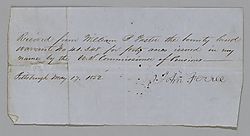 Received from William P. Foster the bounty land
warrant No 41.345 for forty acres issued in my
name by the U.S. Commissioner of Pensions
Pittsburgh May 17, 1852
John